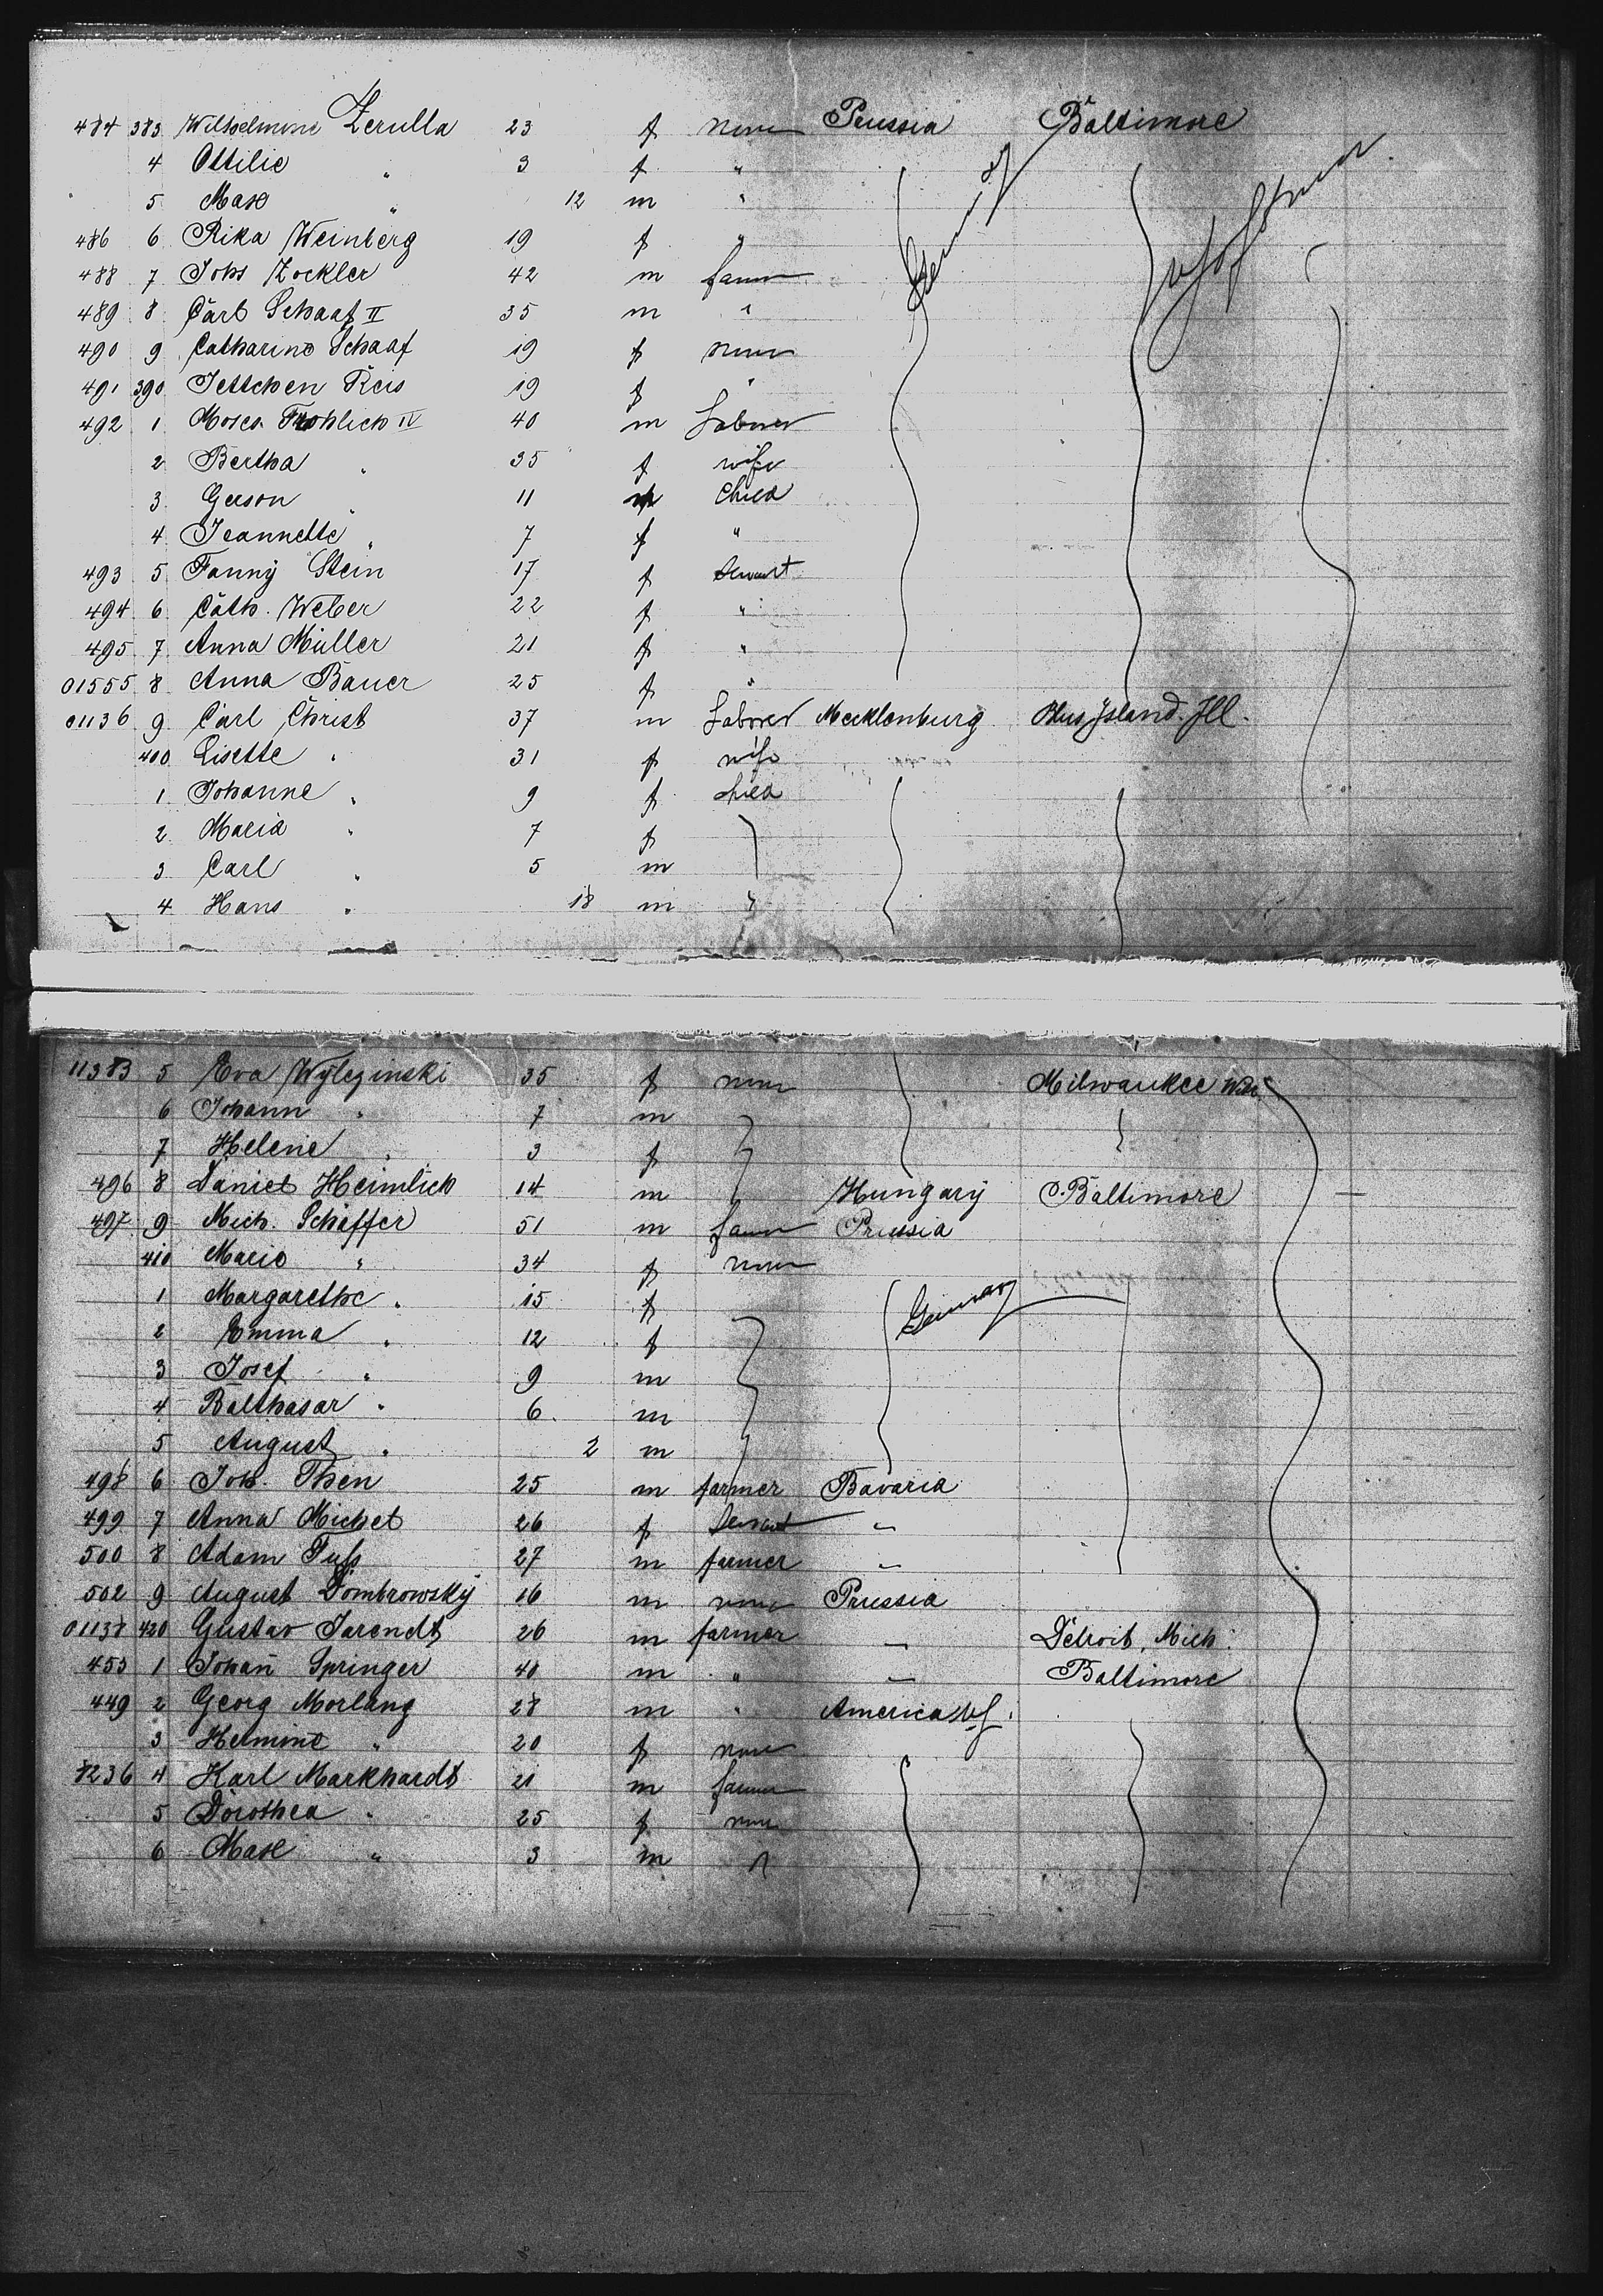 484 383 Wilhelmine Zerulla 23 f none Prussia Baltimore
4 Ottilie " 3 f "
5 Max " 12 m "
486 6 Rika Weinberg 19 f "
488 7 Johs Zockler 42 m farmer
489 8 Carl Schaaf II 35 m "
490 9 Catharine Schaaf 19 f none
491 390 Jettchen Reis 19 f "
492 1 Moses Frohlich IV 40 m Laborer
2 Bertha " 35 f wife
3 Gerson " 11 m Child
4 Jeannette " 7 f "
493 5 Fanny Stein 17 f Servant
494 6 Cath. Weber 22 f "
495 7 Anna Müller 21 f "
01555 8 Anna Bauer 25 f "
01136 9 Carl Christ 37 m Laborer Mecklenburg Island. Ill.
400 Lisette " 31 f wife
1 Johanne " 9 f child
2 Maria " 7 f
3 Carl " 5 m
4 Hans " 18 m
11383 5 Eva Wyleginski 35 f none Milwaukee Wis.
6 Johann " 7 m
7 Helene " 3 f
496 8 Daniel Heimlich 14 m Hungary Baltimore
497 9 Mich. Schäffer 51 m farmer Prussia
410 Marie " 34 f none
1 Margarethe " 15 f Germany
2 Emma " 12 f
3 Josef " 9 m
4 Balthasar " 6 m
5 August " 2 m
498 6 Joh. Then 25 m farmer Bavaria
499 7 Anna Michel 26 f Servant "
500 8 Adam Fuß 27 m farmer "
502 9 August Dombrowský 16 m none Prussia
01138 420 Gustav Jarendt 26 m farmer " Detroit, Mich.
453 1 Johan̄ Springer 40 m " " Baltimore
449 2 Georg Morlang 28 m " America
3 Hermine " 20 f none
8236 4 Karl Markhardt 21 m farmer
5 Dorothea " 25 f none
6 Max " 3 m